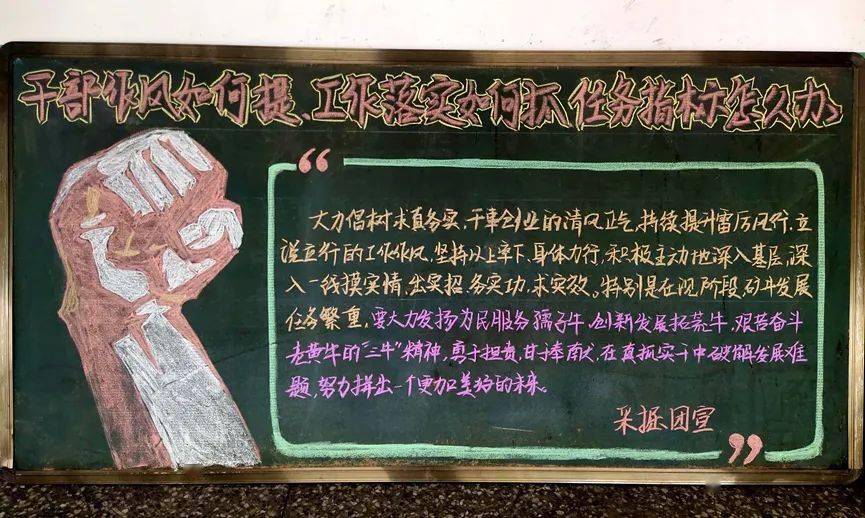 干部作风如何提、工作落实如何抓 任务指标怎么办
“
大力倡树求真务实、干事创业的清风正气,持续提升雷厉风行、立
说立行的工作作风,坚持以上率下、身体力行,积极主动地深入基层,深
入一线摸实情、出实招、务实功、求实效。特别是在现阶段,矿井发展
任务繁重,要大力发扬为民服务孺子牛、创新发展拓荒牛、艰苦奋斗
老黄牛的“三牛”精神,勇于担责,甘于奉献,在真抓实干中破解发展难
题,努力拼出一个更加美好的未来。
采掘团宣
”